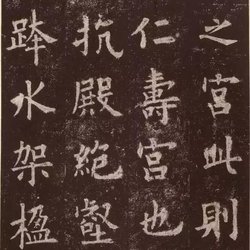 之宮此則
仁壽宮也
抗殿絕壑
跨水架楹